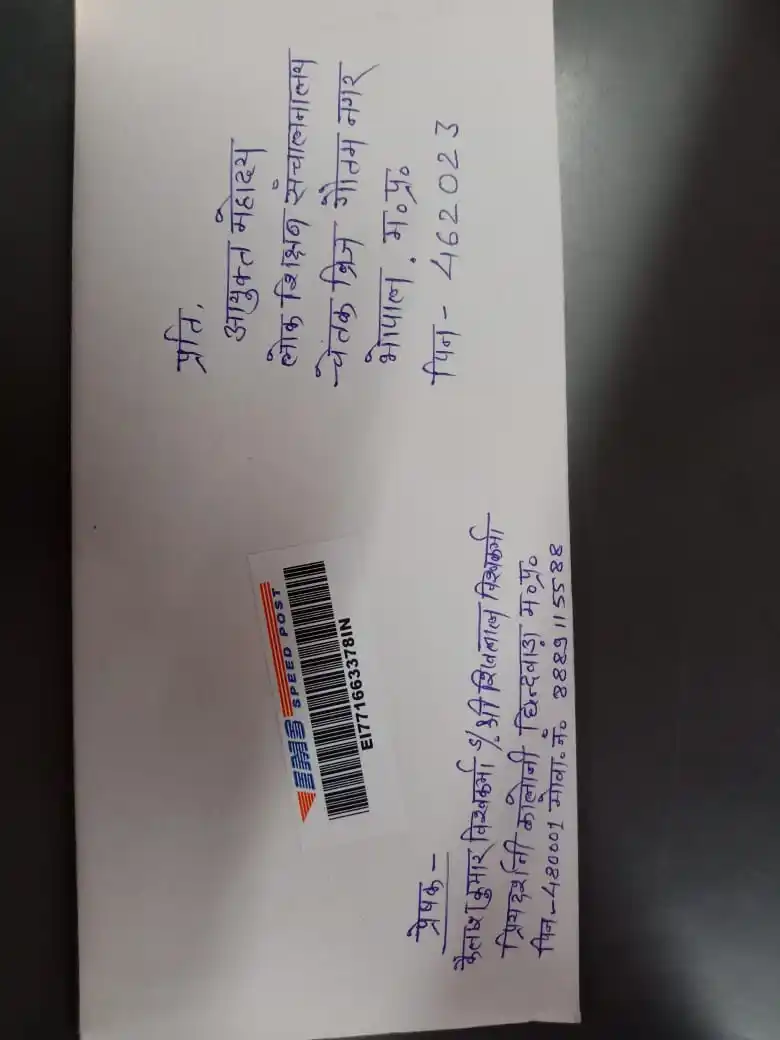 प्रति,
आयुक्त महोदय
लोक शिक्षण संचालनालय
चेतक ब्रिज गौतम नगर
भोपाल. म०प्र०
पिन - 462023
EMS SPEED POST
EI771663378IN
प्रेषक -
कैलाश कुमार विश्वकर्मा S/. श्री शिवलाल विश्वकर्मा
प्रियदर्शिनी कॉलोनी छिन्दवाड़ा म०प्र०
पिन-480001 मोबा. नं० 8889115588